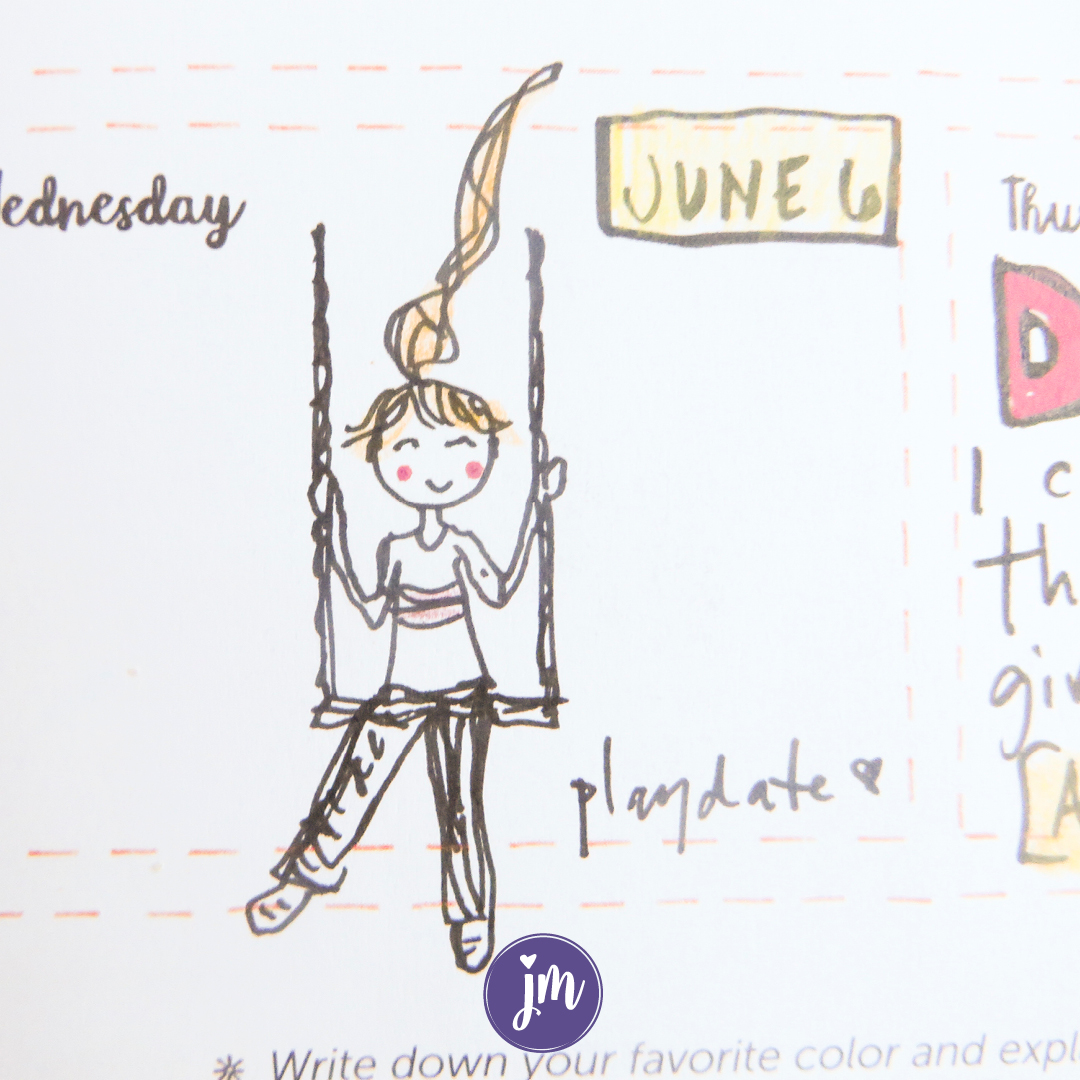 Wednesday
JUNE 6
playdate
Thu
D
I c
th
giv
A
jm
* Write down your favorite color and expl